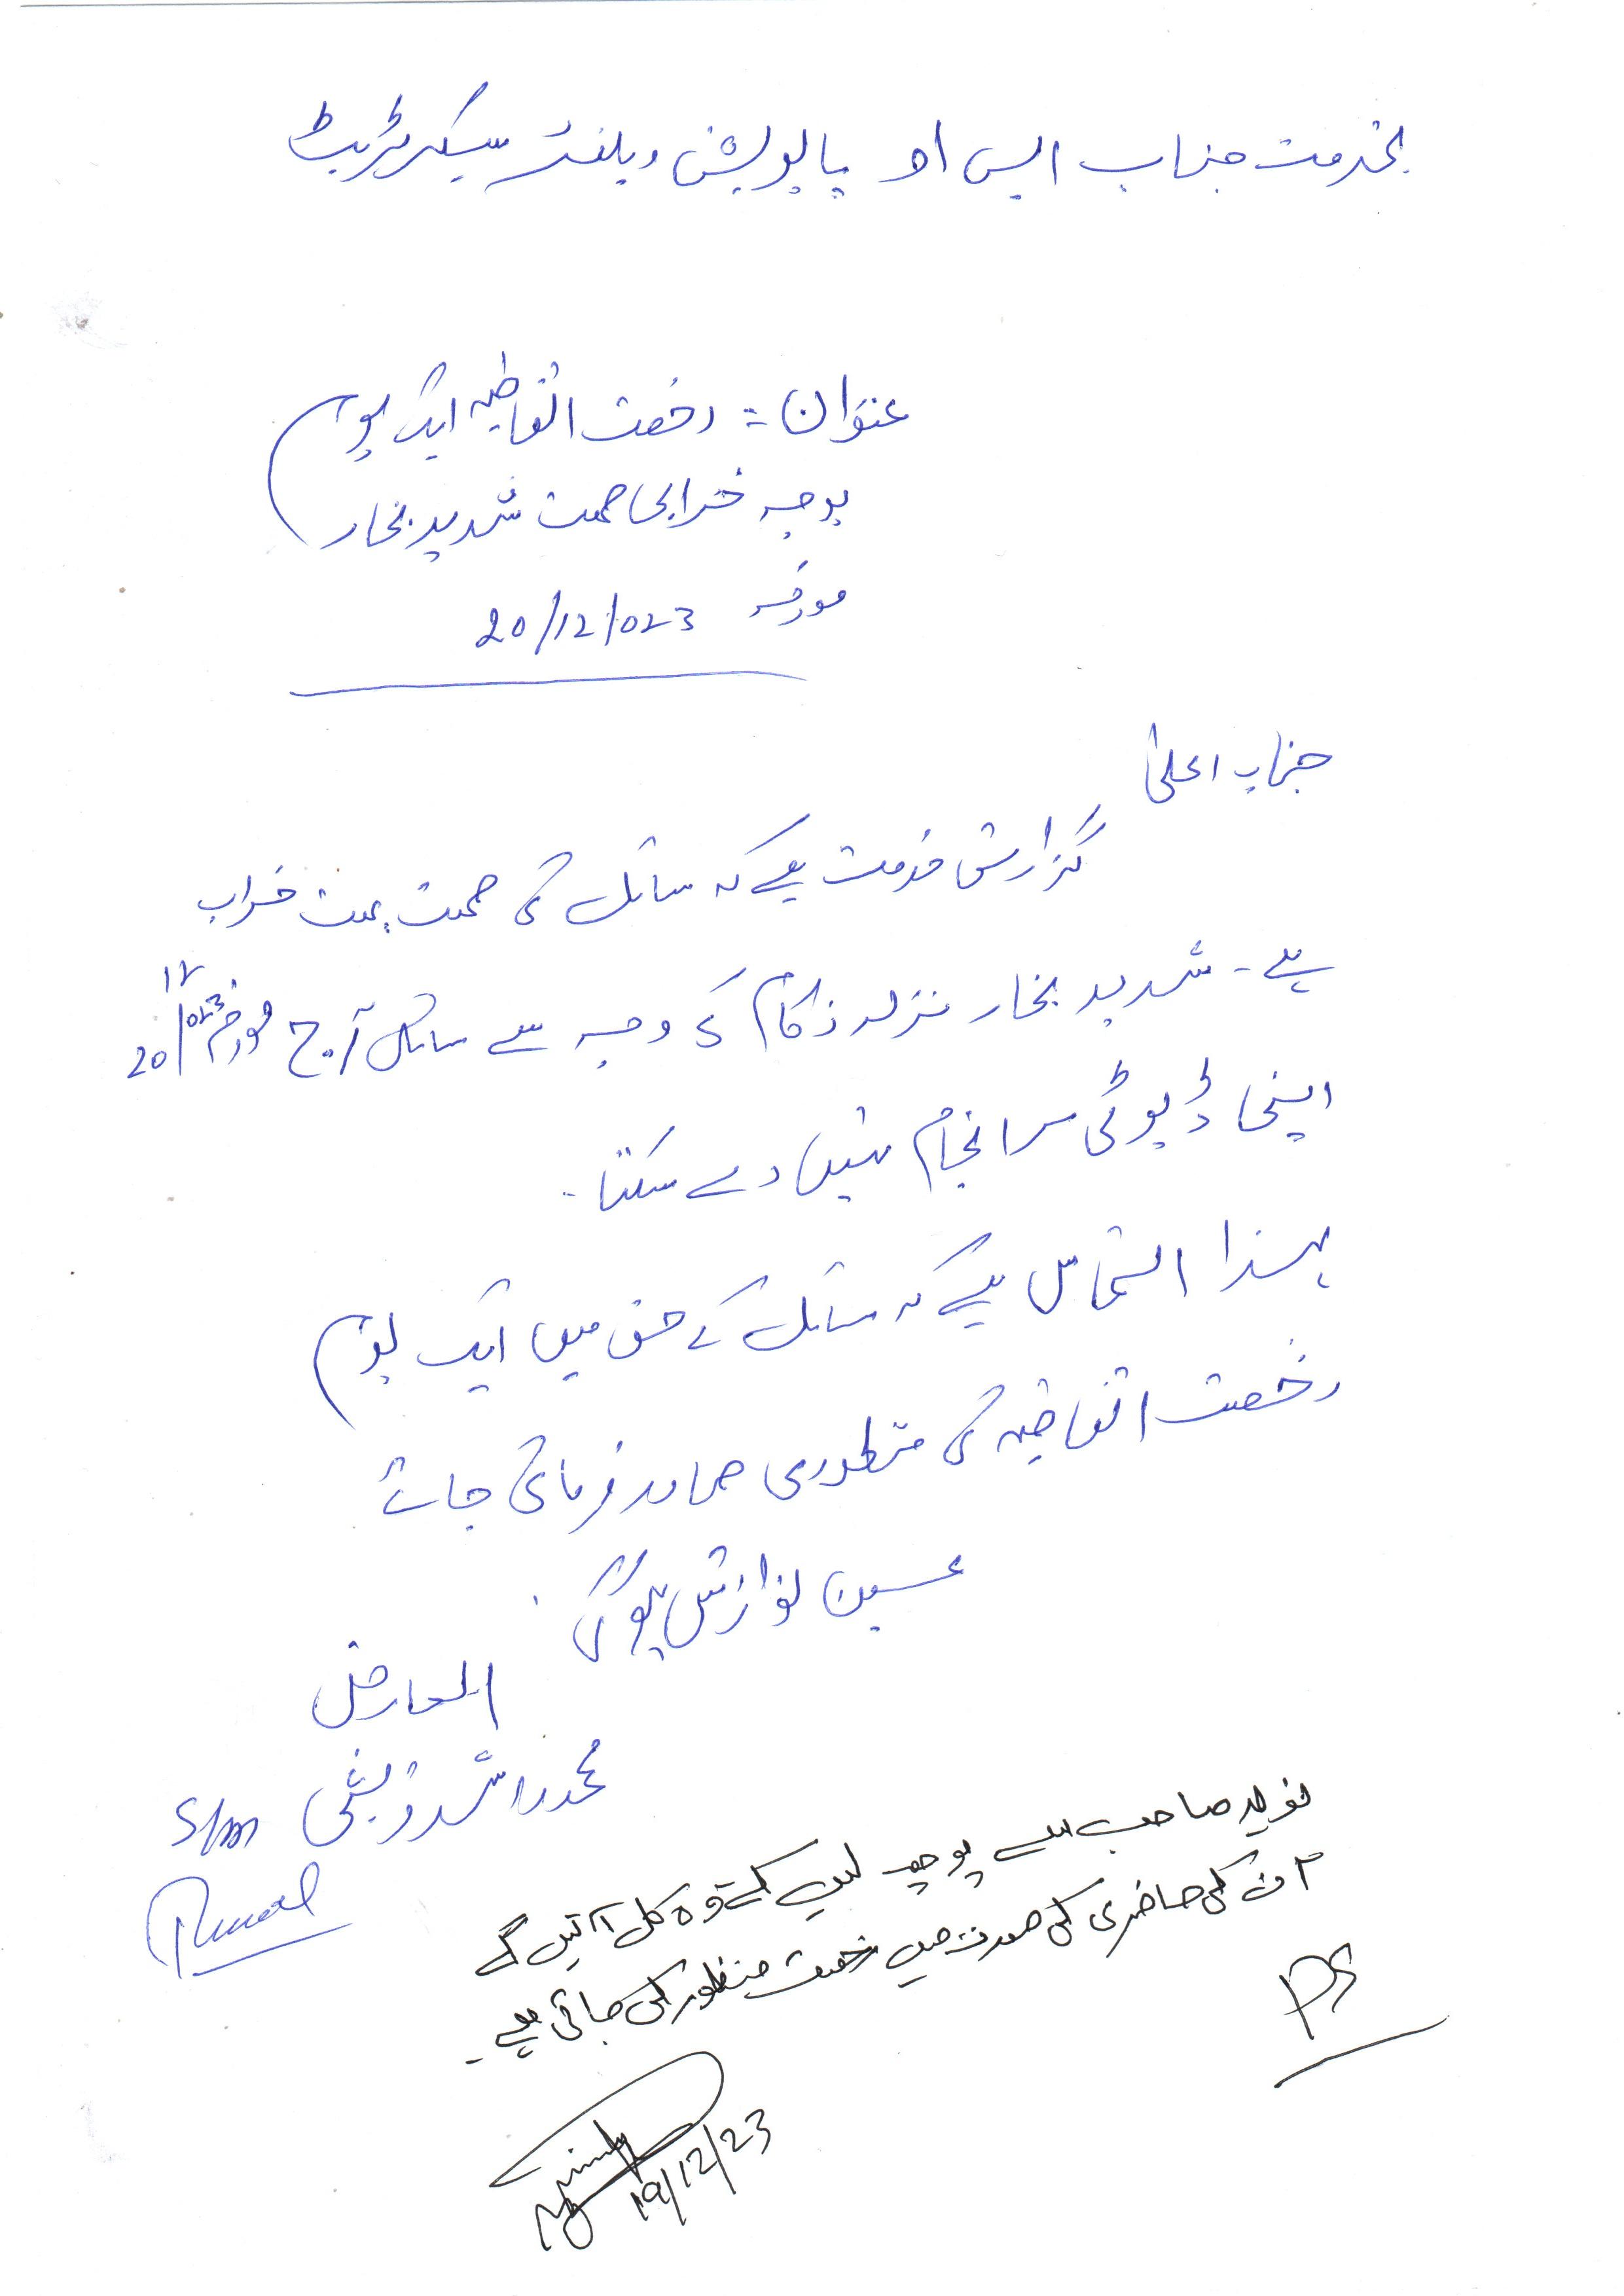 بخدمت جناب ایس او پاپولیشن ویلفئر سیکریٹریٹ
عنوان = رخصت اتفاقیہ ایک یوم
بوجہ خرابی صحت شدید بخار
مورخہ 20/12/023
جناب اعلیٰ
گزارش خدمت ہے کہ سائل کی صحت بہت خراب
ہے - شدید بخار نزلہ زکام کی وجہ سے سائل آج مورخہ 20/12/023
اپنی ڈیوٹی سرانجام نہیں دے سکتا -
لہذا التماس ہے کہ سائل کے حق میں ایک یوم
رخصت اتفاقیہ کی منظوری صادر فرمائی جائے
عین نوازش ہوگی
العارض
محمد راشد قریشی
نوید صاحب سے پوچھ لیں کے وہ کل آئیں گے
ان کی حاضری کی صورت میں رخصت منظور کی جاتی ہے -
PS
19/12/23